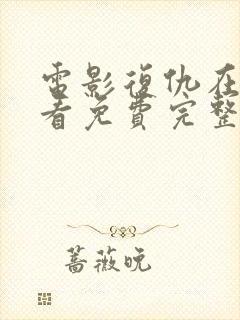 電影復仇在
看免費完整
薔薇晚